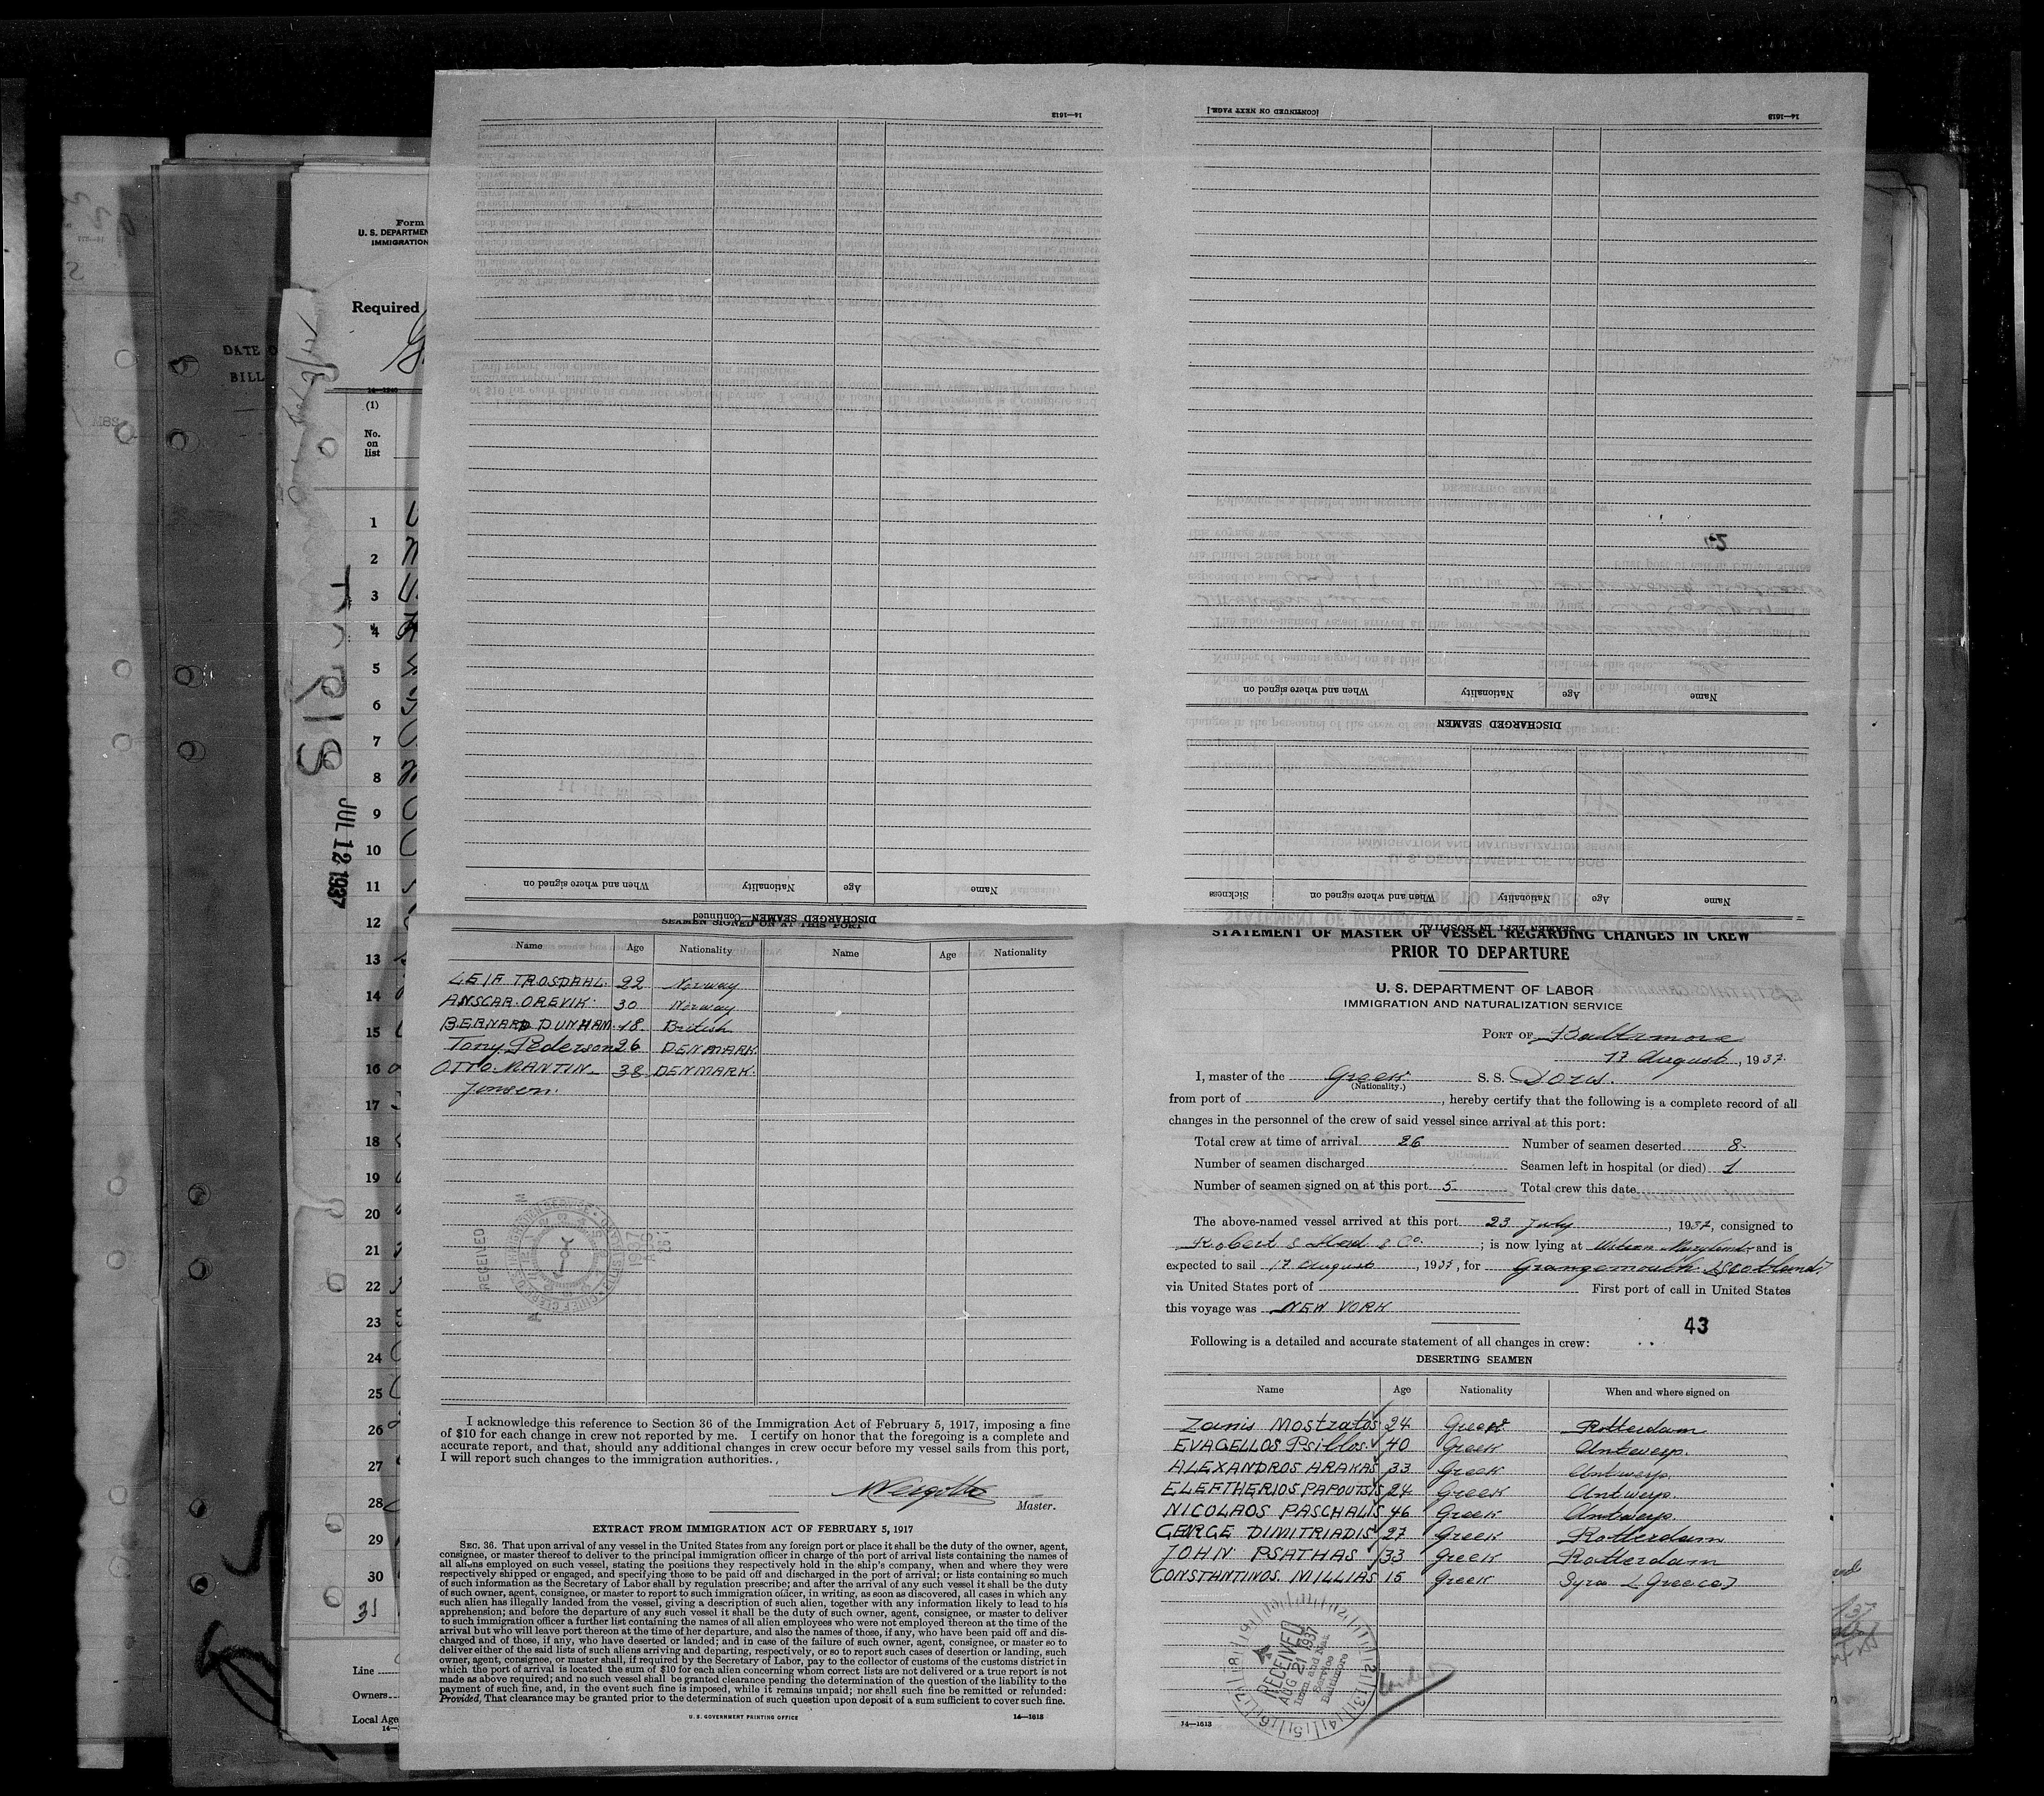 14—1613
[CONTINUED ON NEXT PAGE.]
14—1613
Name Age Nationality When and where signed on
DISCHARGED SEAMEN
Name Age Nationality When and where signed on Sickness
SEAMEN LEFT IN HOSPITAL
Name Age Nationality When and where signed on
DISCHARGED SEAMEN—Continued
Form
U. S. DEPARTMEN
IMMIGRATION
Required
DATE O
BILL
(1)
No.
on
list
1
2
3
4
5
6
7
8
9
10
11
12
13
14
15
16
17
18
19
20
21
22
23
24
25
26
27
28
29
30
31
Line
Owners
Local Age
JUL 12 1937
SEAMEN SIGNED ON AT THIS PORT
Name Age Nationality Name Age Nationality
LEIF TROSDAHL. 22 Norway
ANSCAR. OREVIK. 30 Norway
BERNARD DUNHAM. 18. British
Tony. Pederson 26 DENMARK.
OTTO. MANTIN_ 38 DENMARK.
Jonsen.
RECEIVED
I acknowledge this reference to Section 36 of the Immigration Act of February 5, 1917, imposing a fine
of $10 for each change in crew not reported by me. I certify on honor that the foregoing is a complete and
accurate report, and that, should any additional changes in crew occur before my vessel sails from this port,
I will report such changes to the immigration authorities.
Master.
EXTRACT FROM IMMIGRATION ACT OF FEBRUARY 5, 1917
SEC. 36. That upon arrival of any vessel in the United States from any foreign port or place it shall be the duty of the owner, agent,
consignee, or master thereof to deliver to the principal immigration officer in charge of the port of arrival lists containing the names of
all aliens employed on such vessel, stating the positions they respectively hold in the ship's company, when and where they were
respectively shipped or engaged, and specifying those to be paid off and discharged in the port of arrival; or lists containing so much
of such information as the Secretary of Labor shall by regulation prescribe; and after the arrival of any such vessel it shall be the duty
of such owner, agent, consignee, or master to report to such immigration officer, in writing, as soon as discovered, all cases in which any
such alien has illegally landed from the vessel, giving a description of such alien, together with any information likely to lead to his
apprehension; and before the departure of any such vessel it shall be the duty of such owner, agent, consignee, or master to deliver
to such immigration officer a further list containing the names of all alien employees who were not employed thereon at the time of the
arrival but who will leave port thereon at the time of her departure, and also the names of those, if any, who have been paid off and dis-
charged and of those, if any, who have deserted or landed; and in case of the failure of such owner, agent, consignee, or master so to
deliver either of the said lists of such aliens arriving and departing, respectively, or so to report such cases of desertion or landing, such
owner, agent, consignee, or master shall, if required by the Secretary of Labor, pay to the collector of customs of the customs district in
which the port of arrival is located the sum of $10 for each alien concerning whom correct lists are not delivered or a true report is not
made as above required; and no such vessel shall be granted clearance pending the determination of the question of the liability to the
payment of such fine, and, in the event such fine is imposed, while it remains unpaid; nor shall such fine be remitted or refunded:
Provided, That clearance may be granted prior to the determination of such question upon deposit of a sum sufficient to cover such fine.
U. S. GOVERNMENT PRINTING OFFICE 14—1613
STATEMENT OF MASTER OF VESSEL REGARDING CHANGES IN CREW
PRIOR TO DEPARTURE
U. S. DEPARTMENT OF LABOR
IMMIGRATION AND NATURALIZATION SERVICE
PORT OF Baltimore
17 August, 1937.
I, master of the Greek S. S. Doris.
(Nationality.)
from port of , hereby certify that the following is a complete record of all
changes in the personnel of the crew of said vessel since arrival at this port:
Total crew at time of arrival 26 Number of seamen deserted 8.
Number of seamen discharged Seamen left in hospital (or died) 1
Number of seamen signed on at this port 5 Total crew this date
The above-named vessel arrived at this port 23 July, 1937, consigned to
Robert & Co.; is now lying at Maryland and is
expected to sail 17 August, 1937, for Grangemouth. (Scotland)
via United States port of First port of call in United States
this voyage was NEW YORK
43
Following is a detailed and accurate statement of all changes in crew:
DESERTING SEAMEN
Name Age Nationality When and where signed on
Zanis Mostratos 24 Greek Rotterdam
EVAGELLOS Psillos. 40 Greek Antwerp.
ALEXANDROS ARAKAS 33 Greek Antwerp.
ELEFTHERIOS. PAPOUTSIS 24 Greek Antwerp.
NICOLAOS PASCHALIS 46 Greek Antwerp
GEORGE DIMITRIADIS 27 Greek Rotterdam
JOHN PSATHAS 33 Greek Rotterdam
CONSTANTINOS. MILLIAS 15 Greek Syra (Greece)
RECEIVED
AUG 21 1937
Imm. and Nat.
Service
Baltimore
14—1613